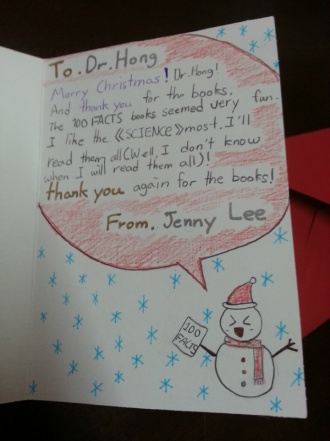 To. Dr. Hong
Merry Christmas! Dr. Hong!
And thank you for the books.
The 100 FACTS books seemed very fun.
I like the 《SCIENCE》 most. I'll
read them all(Well, I don't know
when I will read them all)!
thank you again for the books!
From. Jenny Lee
100
FACTS